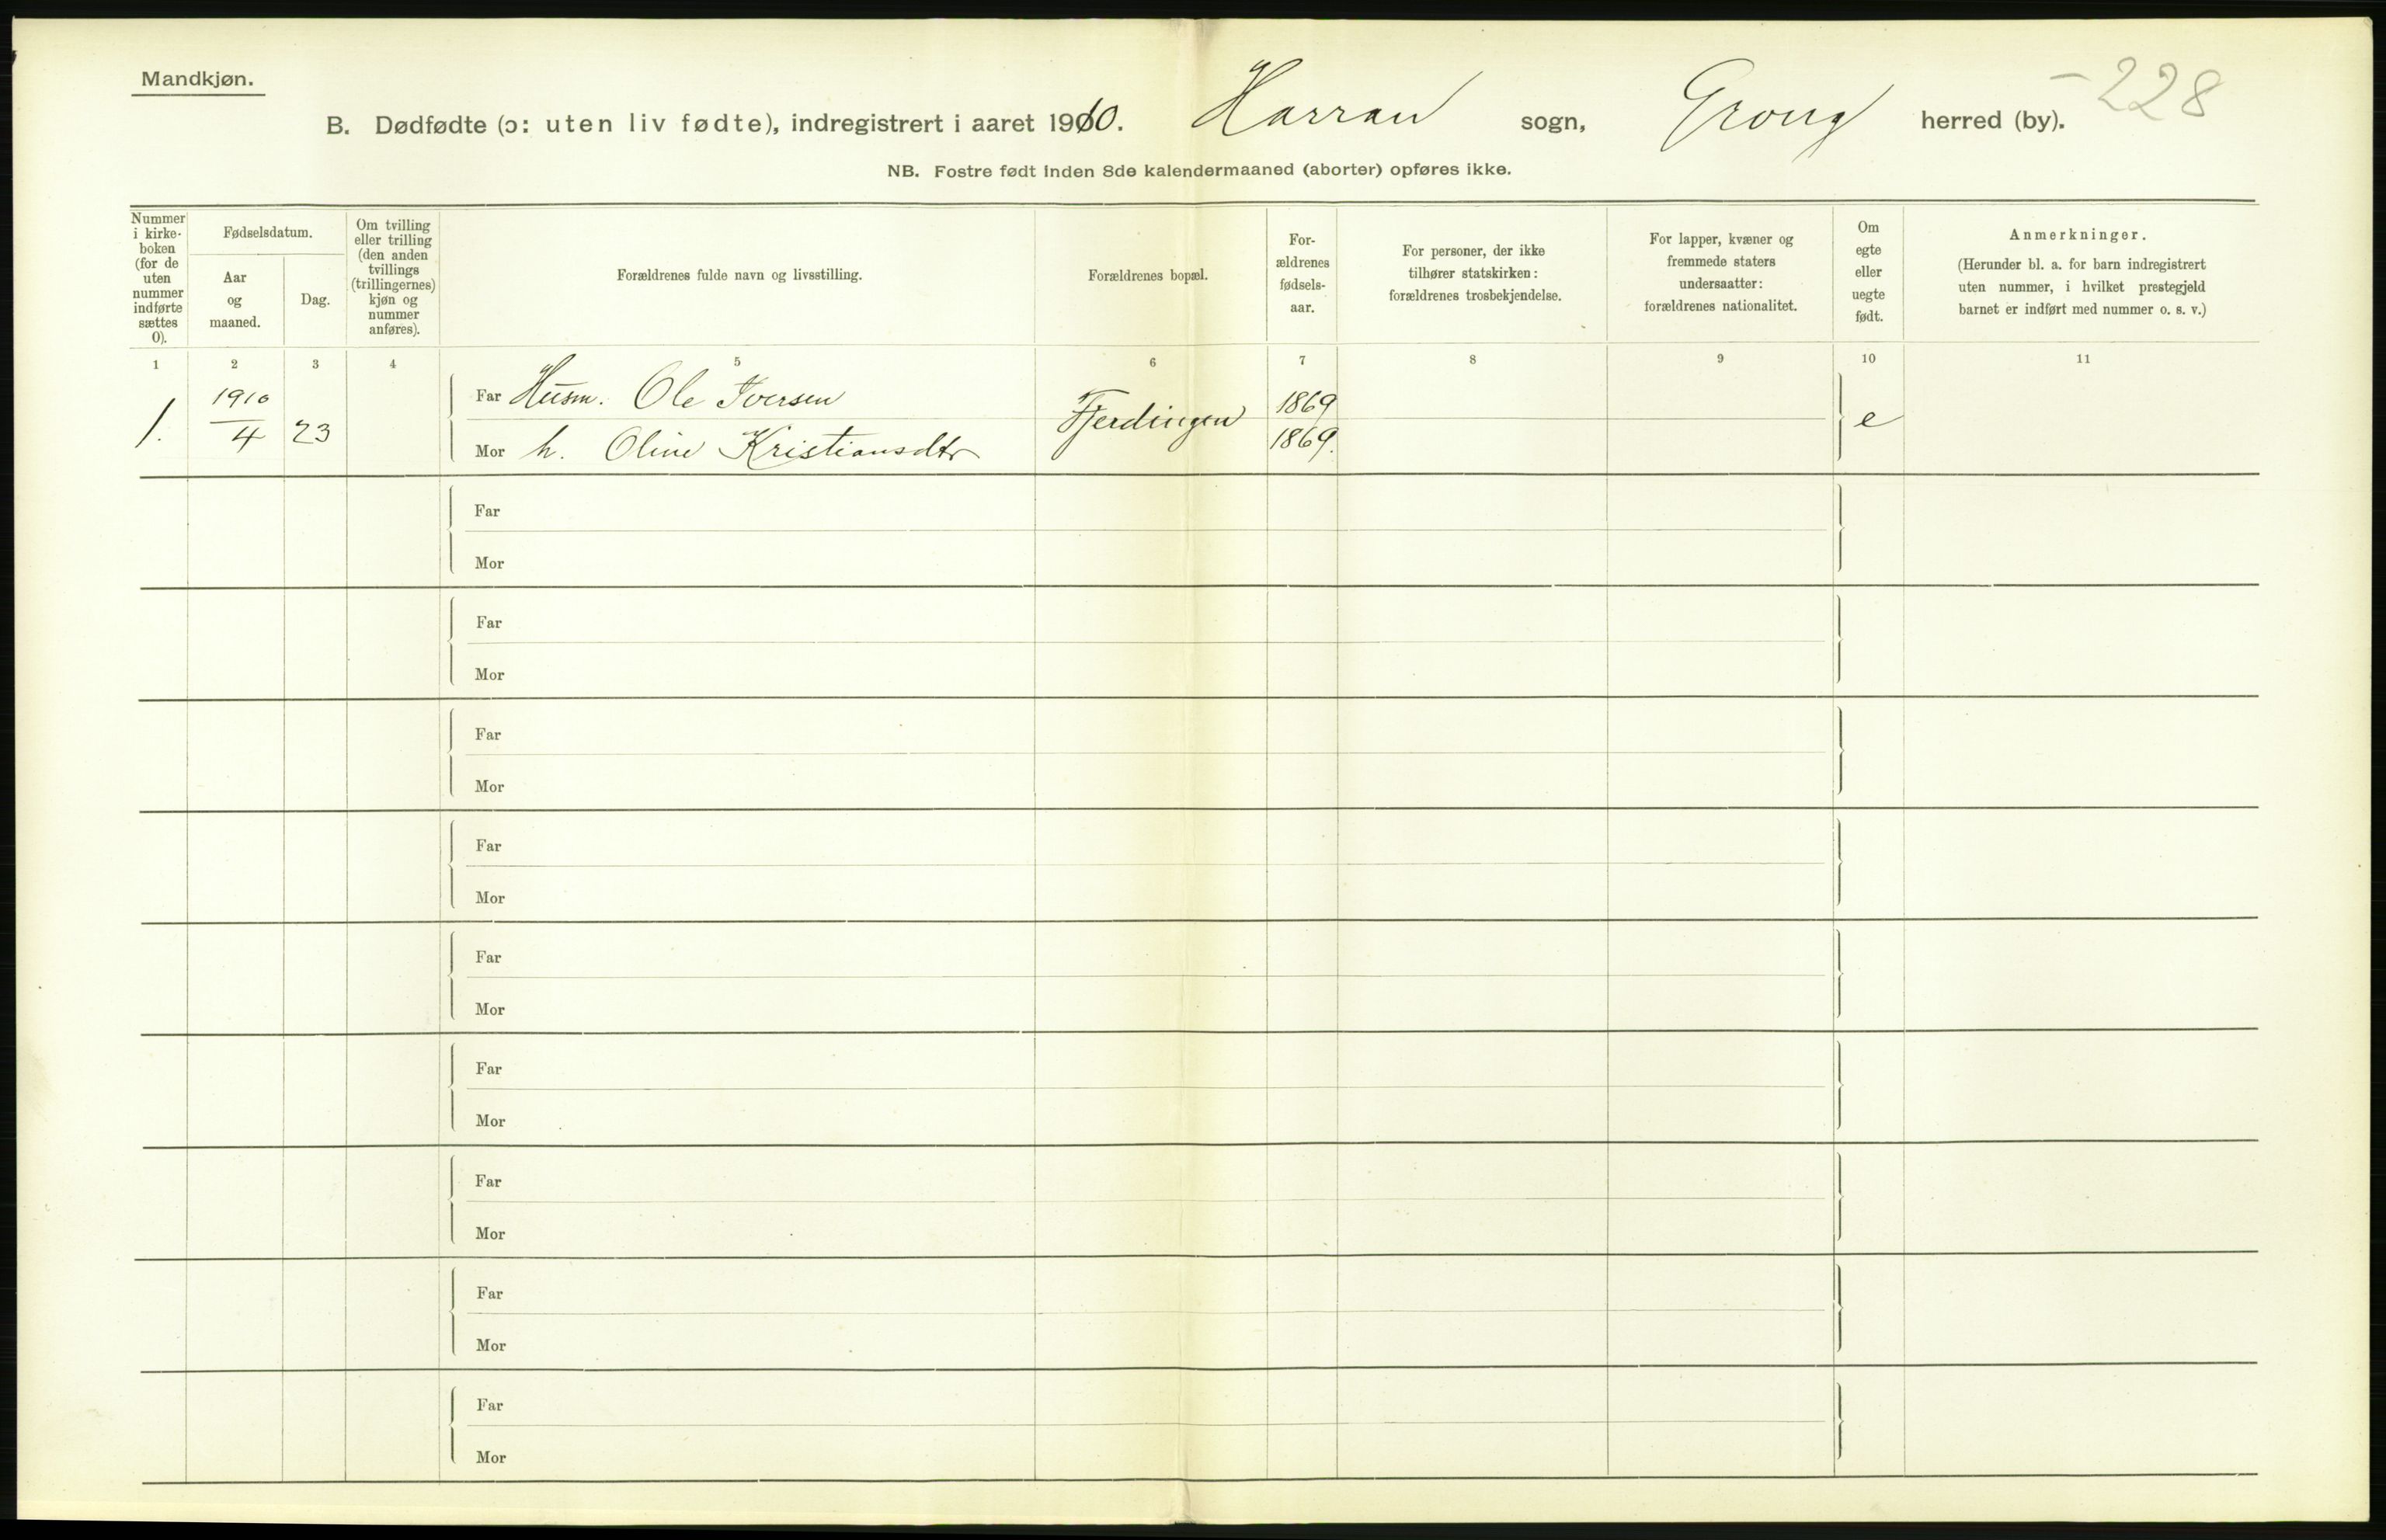 Mandkjøn.
B. Dødfødte (ɔ: uten liv fødte), indregistrert i aaret 1910. Harran sogn, Grong herred (by). -228
NB. Fostre født inden 8de kalendermaaned (aborter) opføres ikke.
Nummer
i kirke-
boken
(for de
uten
nummer
indførte
sættes
0).
Fødselsdatum.
Aar
og
maaned.
Dag.
Om tvilling
eller trilling
(den anden
tvillings
(trillingernes)
kjøn og
nummer
anføres).
Forældrenes fulde navn og livsstilling.
Forældrenes bopæl.
For-
ældrenes
fødsels-
aar.
For personer, der ikke
tilhører statskirken:
forældrenes trosbekjendelse.
For lapper, kvæner og
fremmede staters
undersaatter:
forældrenes nationalitet.
Om
egte
eller
uegte
født.
Anmerkninger.
(Herunder bl. a. for barn indregistrert
uten nummer, i hvilket prestegjeld
barnet er indført med nummer o. s. v.)
1 2 3 4 5 6 7 8 9 10 11
1. 1910
4 23
Far Husm. Ole Iversen
Mor h. Oline Kristiansdtr
Fjerdingen
1869
1869.
e
Far
Mor
Far
Mor
Far
Mor
Far
Mor
Far
Mor
Far
Mor
Far
Mor
Far
Mor
Far
Mor